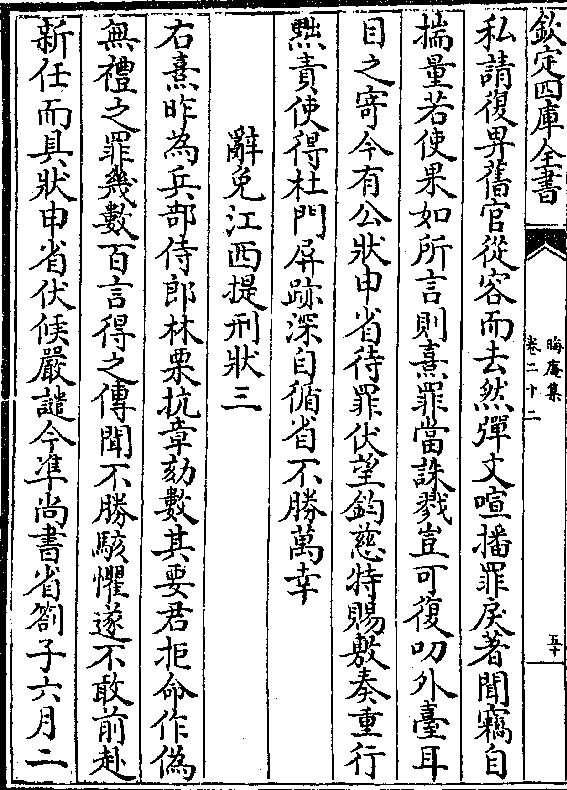 欽定四庫全書
晦庵集
卷二十二
五十
私請復畀舊官從容而去然彈文喧播罪戾著聞竊自
揣量若使果如所言則熹罪當誅戮豈可復叨外臺耳
目之寄今有公狀申省待罪伏望鈞慈特賜敷奏重行
黜責使得杜門屏跡深自循省不勝萬幸
辭免江西提刑狀三
右熹昨為兵部侍郎林栗抗章劾數其要君拒命作偽
無禮之罪幾數百言得之傳聞不勝駭懼遂不敢前赴
新任而具狀申省伏候嚴譴今準尚書省劄子六月二